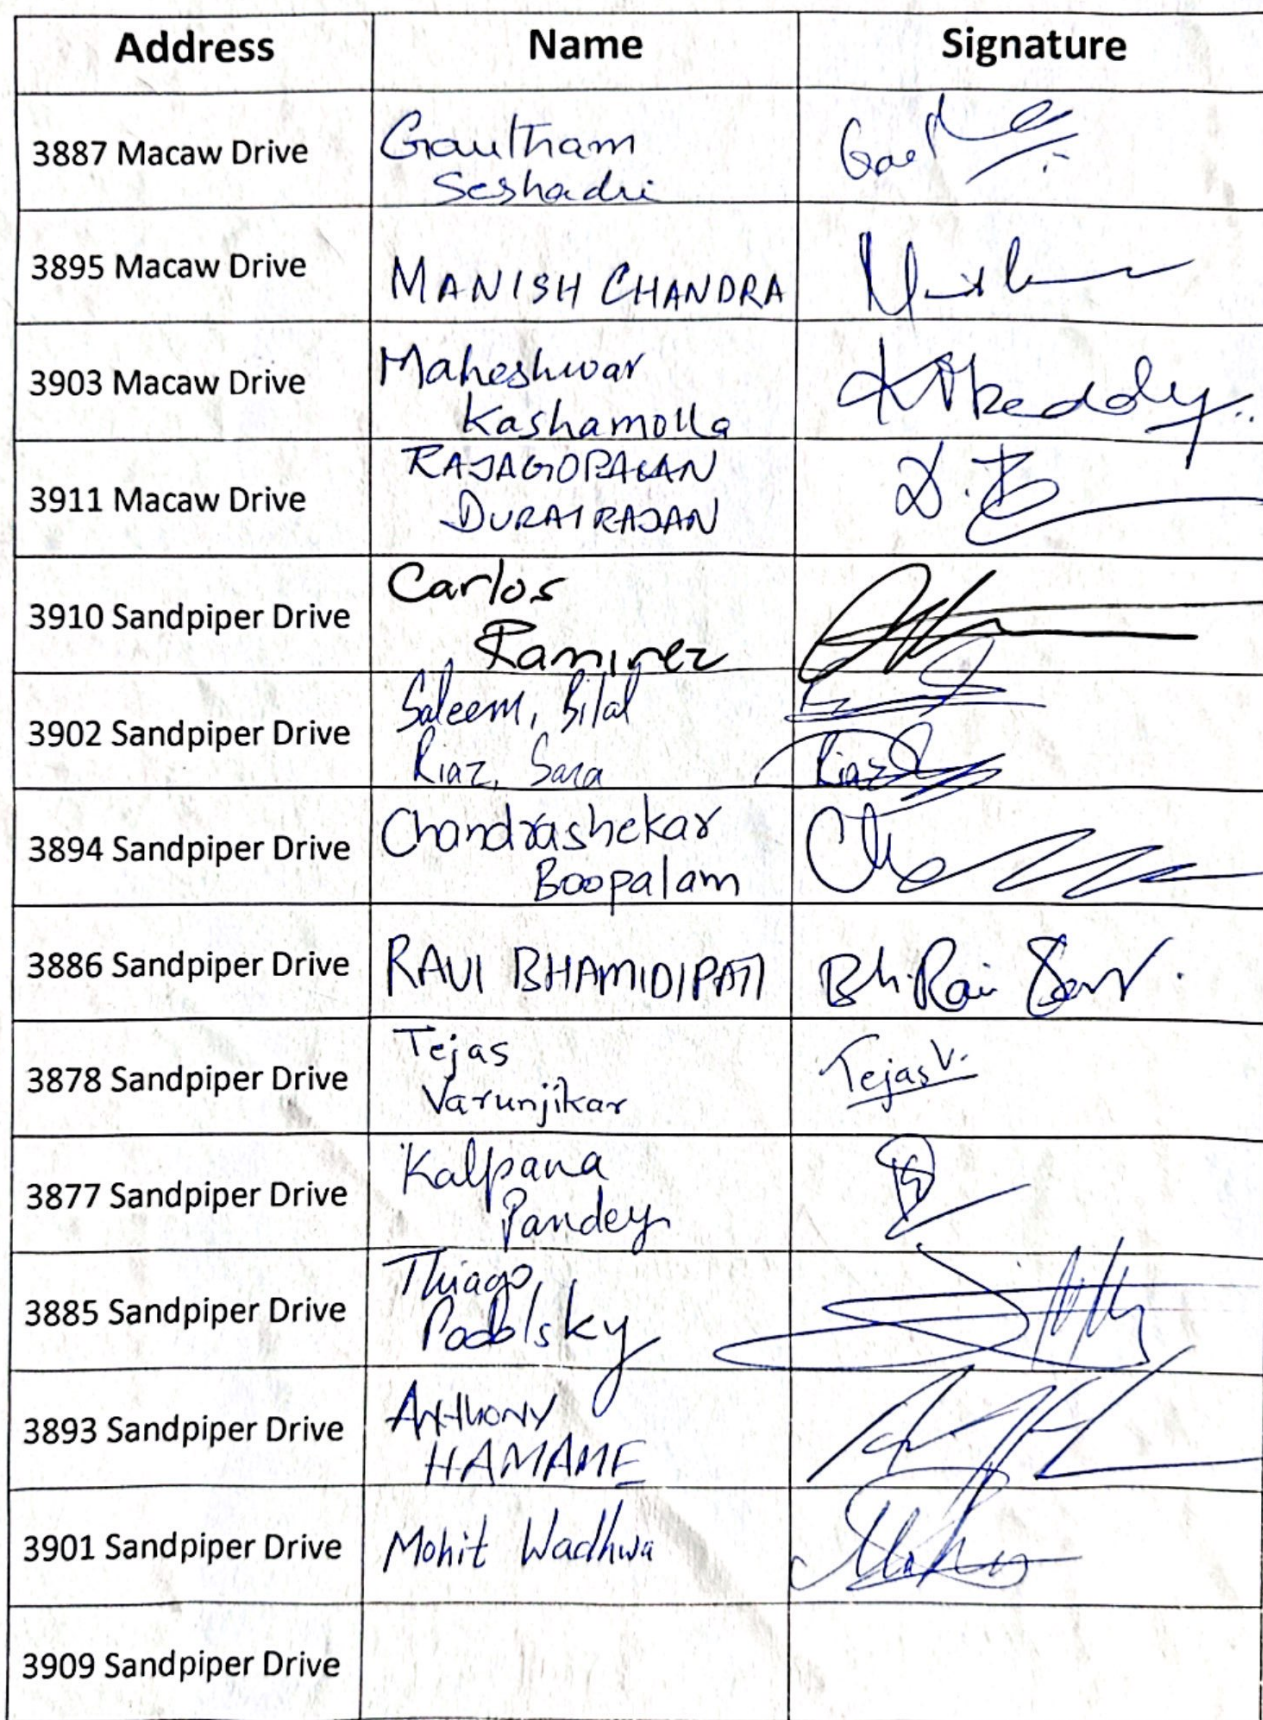 Address Name Signature
3887 Macaw Drive Gautham
Seshadri
3895 Macaw Drive MANISH CHANDRA
3903 Macaw Drive Maheshwar
Kashamolla KMReddy
3911 Macaw Drive RAJAGOPALAN
DURAIRAJAN
3910 Sandpiper Drive Carlos
Ramirez
3902 Sandpiper Drive Saleem, Bilal
Riaz, Sara Riaz
3894 Sandpiper Drive Chandrashekar
Boopalam
3886 Sandpiper Drive RAVI BHAMIDIPATI
3878 Sandpiper Drive Tejas
Varunjikar Tejas V.
3877 Sandpiper Drive Kalpana
Pandey
3885 Sandpiper Drive Thiago
Podolsky
3893 Sandpiper Drive ANTHONY
HAMAME
3901 Sandpiper Drive Mohit Wadhwa
3909 Sandpiper Drive